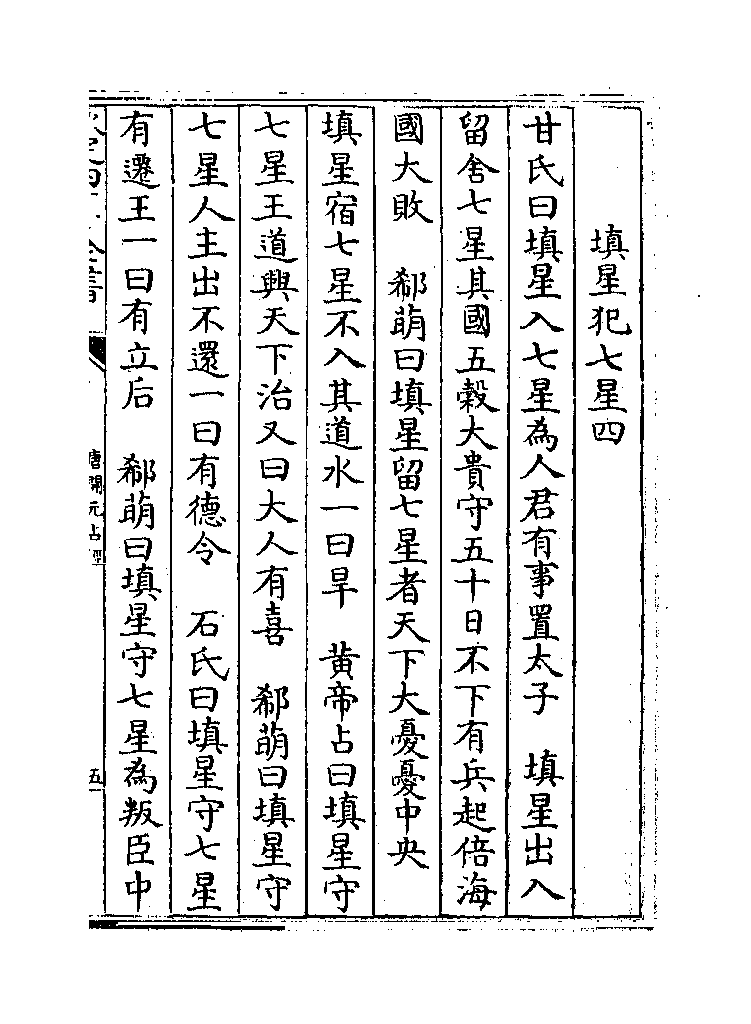 填星犯七星四
甘氏曰填星入七星為人君有事置太子　填星出入
留舍七星其國五榖大貴守五十日不下有兵起倍海
國大敗　郗萌曰填星留七星者天下大憂憂中央
填星宿七星不入其道水一曰旱　黄帝占曰填星守
七星王道興天下治又曰大人有喜　郗萌曰填星守
七星人主出不還一曰有德令　石氏曰填星守七星
有遷王一曰有立后　郗萌曰填星守七星為叛臣中
全書
唐開元占經
五